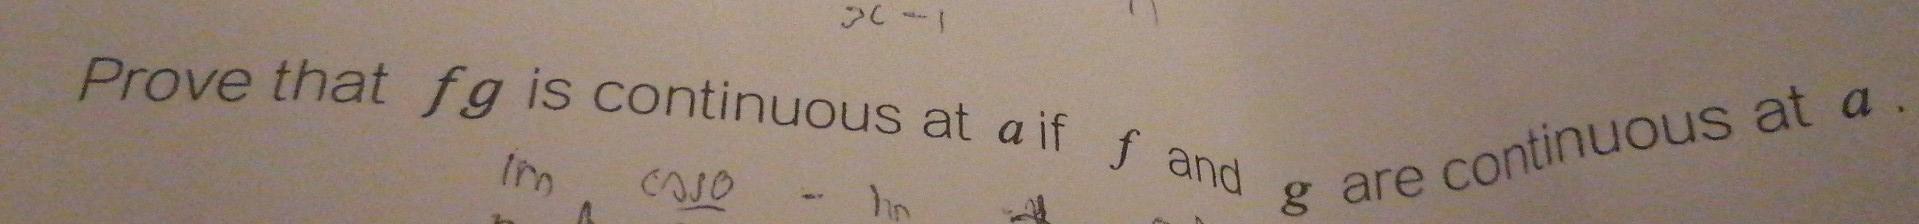 x-1
Prove that fg is continuous at a if f and g are continuous at a.